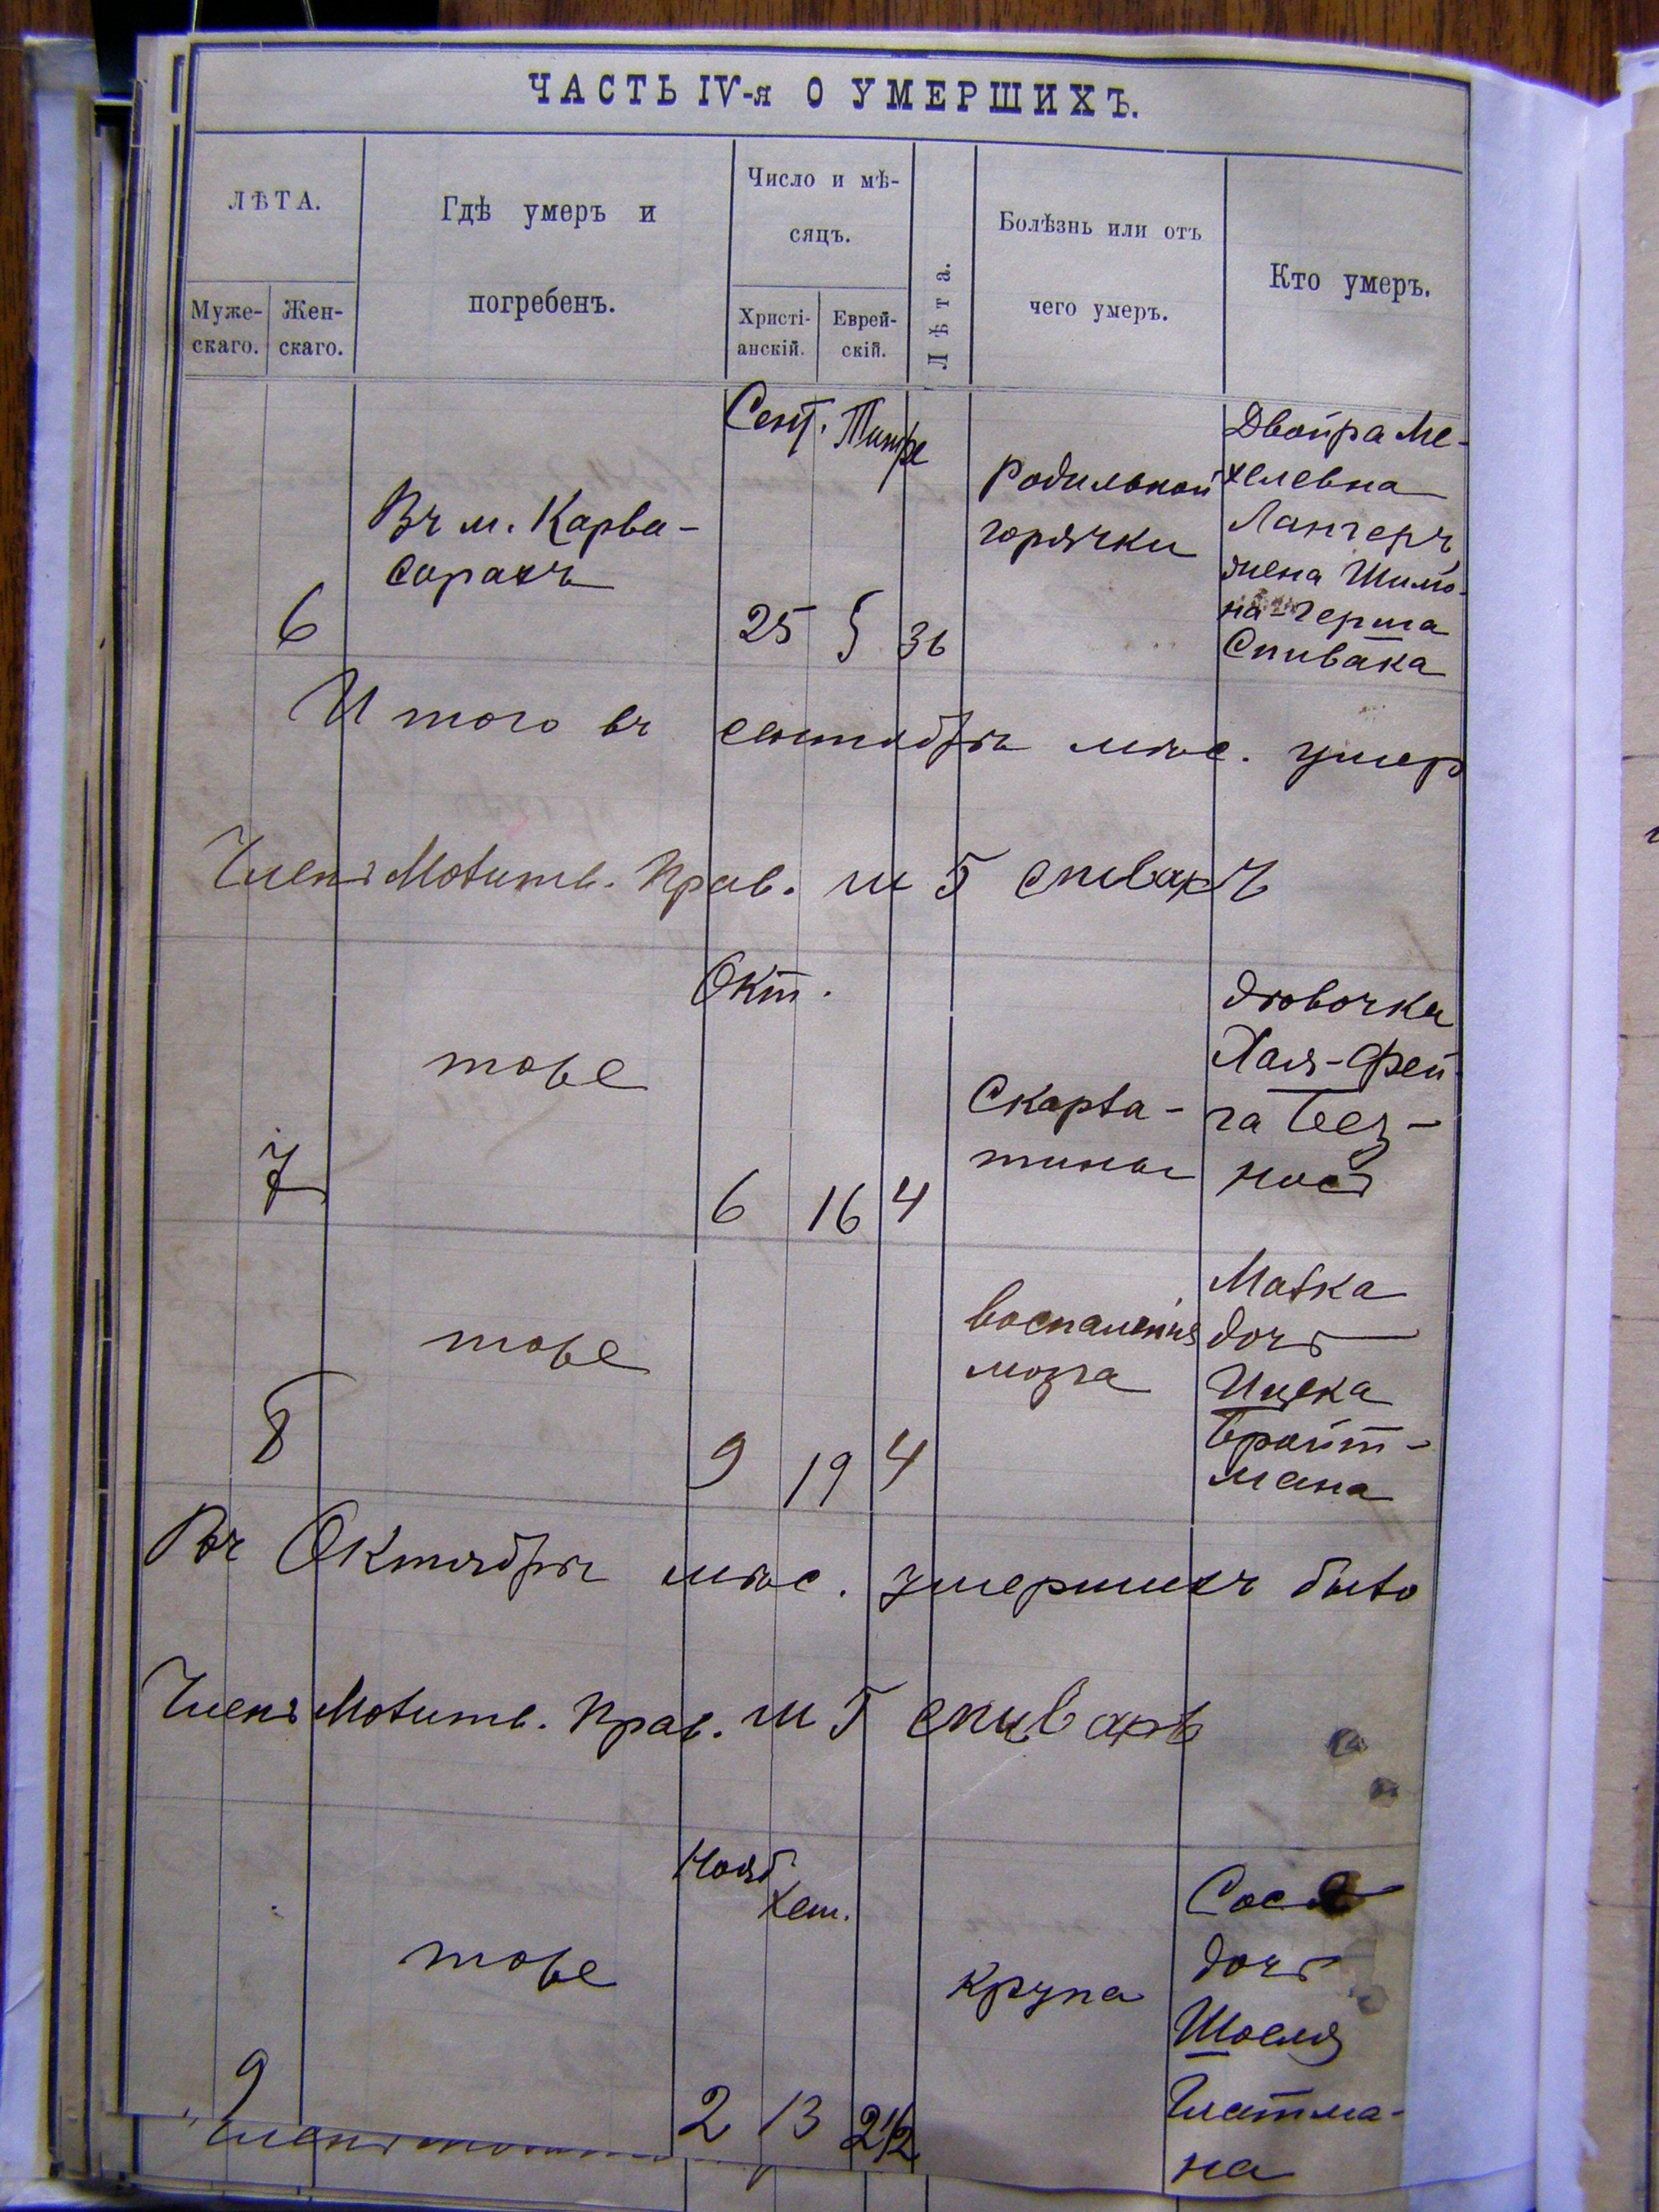 ЧАСТЬ IV-я О УМЕРШИХЪ.
ЛѢТА.
Муже-
скаго.
Жен-
скаго.
Гдѣ умеръ и
погребенъ.
Число и мѣ-
сяцъ.
Христі-
анскій.
Еврей-
скій.
Лѣта.
Болѣзнь или отъ
чего умеръ.
Кто умеръ.
6
Въ м. Карва-
сарахъ
Сент. Тишре
25 5 36
Родильной
горячки
Двойра Ме-
хелевна
Лангеръ
жена Шимо-
на-Герша
Спивака
Итого въ сентябрѣ мѣс. умер
Членъ Молитв. Прав. Ш Г Спивакъ
7
тоже
Окт.
6 16 4
Скарла-
тины
дѣвочка
Хая-Фей-
га Без-
носъ
8
тоже
9 19 4
воспаленія
мозга
Малка
дочь
Ицка
Бройт-
мана
Въ Октябрѣ мѣс. умершихъ было
Членъ Молитв. Прав. Ш Г Спивакъ
9
тоже
Нояб
Хеш.
2 13 2 1/2
Крупа
Сося
дочь
Шоеля
Глатма-
на
Членъ